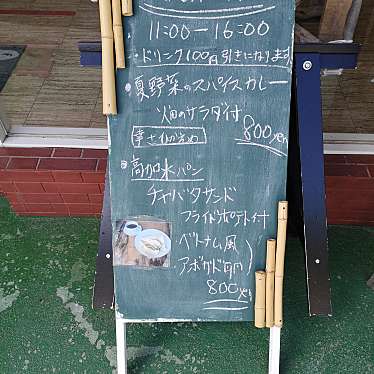 11:00-16:00
・ドリンク100円引きになります
・夏野菜のスパイスカレー
畑のサラダ付
800yen
辛さひかえめ
・高加水パン
チャバタサンド
フライドポテト付
・ベトナム風
・アボカド
800yen